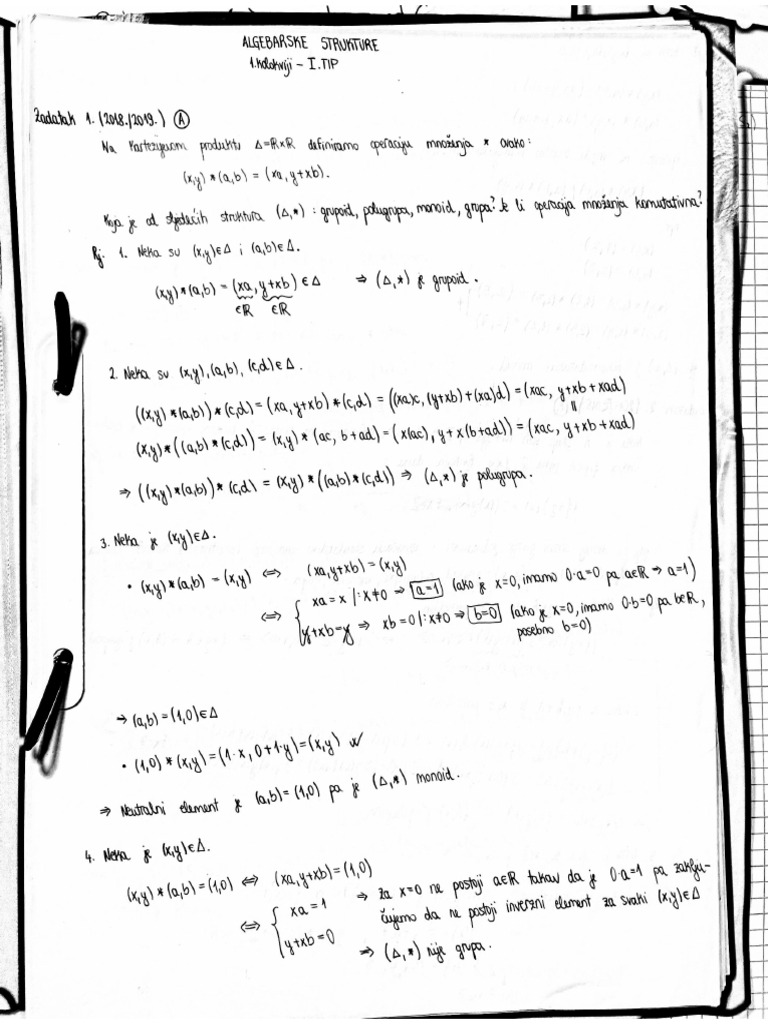 ALGEBARSKE STRUKTURE
1. kolokviji - I. TIP
Zadatak 1. (2018./2019.) Ⓐ
Na Kartezijevom produktu Δ=ℝ×ℝ definiramo operaciju množenja * ovako:
(x,y)*(a,b) = (xa, y+xb).
Koja je od sljedećih struktura (Δ,*) : grupoid, polugrupa, monoid, grupa? Je li operacija množenja komutativna?
Rj. 1. Neka su (x,y)∈Δ i (a,b)∈Δ.
(x,y)*(a,b) = (xa, y+xb) ∈ Δ ⇒ (Δ,*) je grupoid.
∈ℝ ∈ℝ
2. Neka su (x,y), (a,b), (c,d)∈Δ.
((x,y)*(a,b))*(c,d) = (xa, y+xb)*(c,d) = ((xa)c, (y+xb)+(xa)d) = (xac, y+xb+xad)
=
(x,y)*((a,b)*(c,d)) = (x,y)*(ac, b+ad) = (x(ac), y+x(b+ad)) = (xac, y+xb+xad)
⇒ ((x,y)*(a,b))*(c,d) = (x,y)*((a,b)*(c,d)) ⇒ (Δ,*) je polugrupa.
3. Neka je (x,y)∈Δ.
• (x,y)*(a,b) = (x,y) ⇔ (xa, y+xb) = (x,y)
⇔ { xa = x |:x≠0 ⇒ a=1 (ako je x=0, imamo 0·a=0 pa a∈ℝ ⇒ a=1)
y+xb=y ⇒ xb=0 |:x≠0 ⇒ b=0 (ako je x=0, imamo 0·b=0 pa b∈ℝ,
posebno b=0)
→ (a,b) = (1,0)∈Δ
• (1,0)*(x,y) = (1·x, 0+1·y) = (x,y) ✓
⇒ Neutralni element je (a,b) = (1,0) pa je (Δ,*) monoid.
4. Neka je (x,y)∈Δ.
(x,y)*(a,b) = (1,0) ⇔ (xa, y+xb) = (1,0)
⇔ { xa = 1 ⇒ za x=0 ne postoji a∈ℝ takav da je 0·a=1 pa zaklju-
y+xb = 0 čujemo da ne postoji inverzni element za svaki (x,y)∈Δ
⇒ (Δ,*) nije grupa.